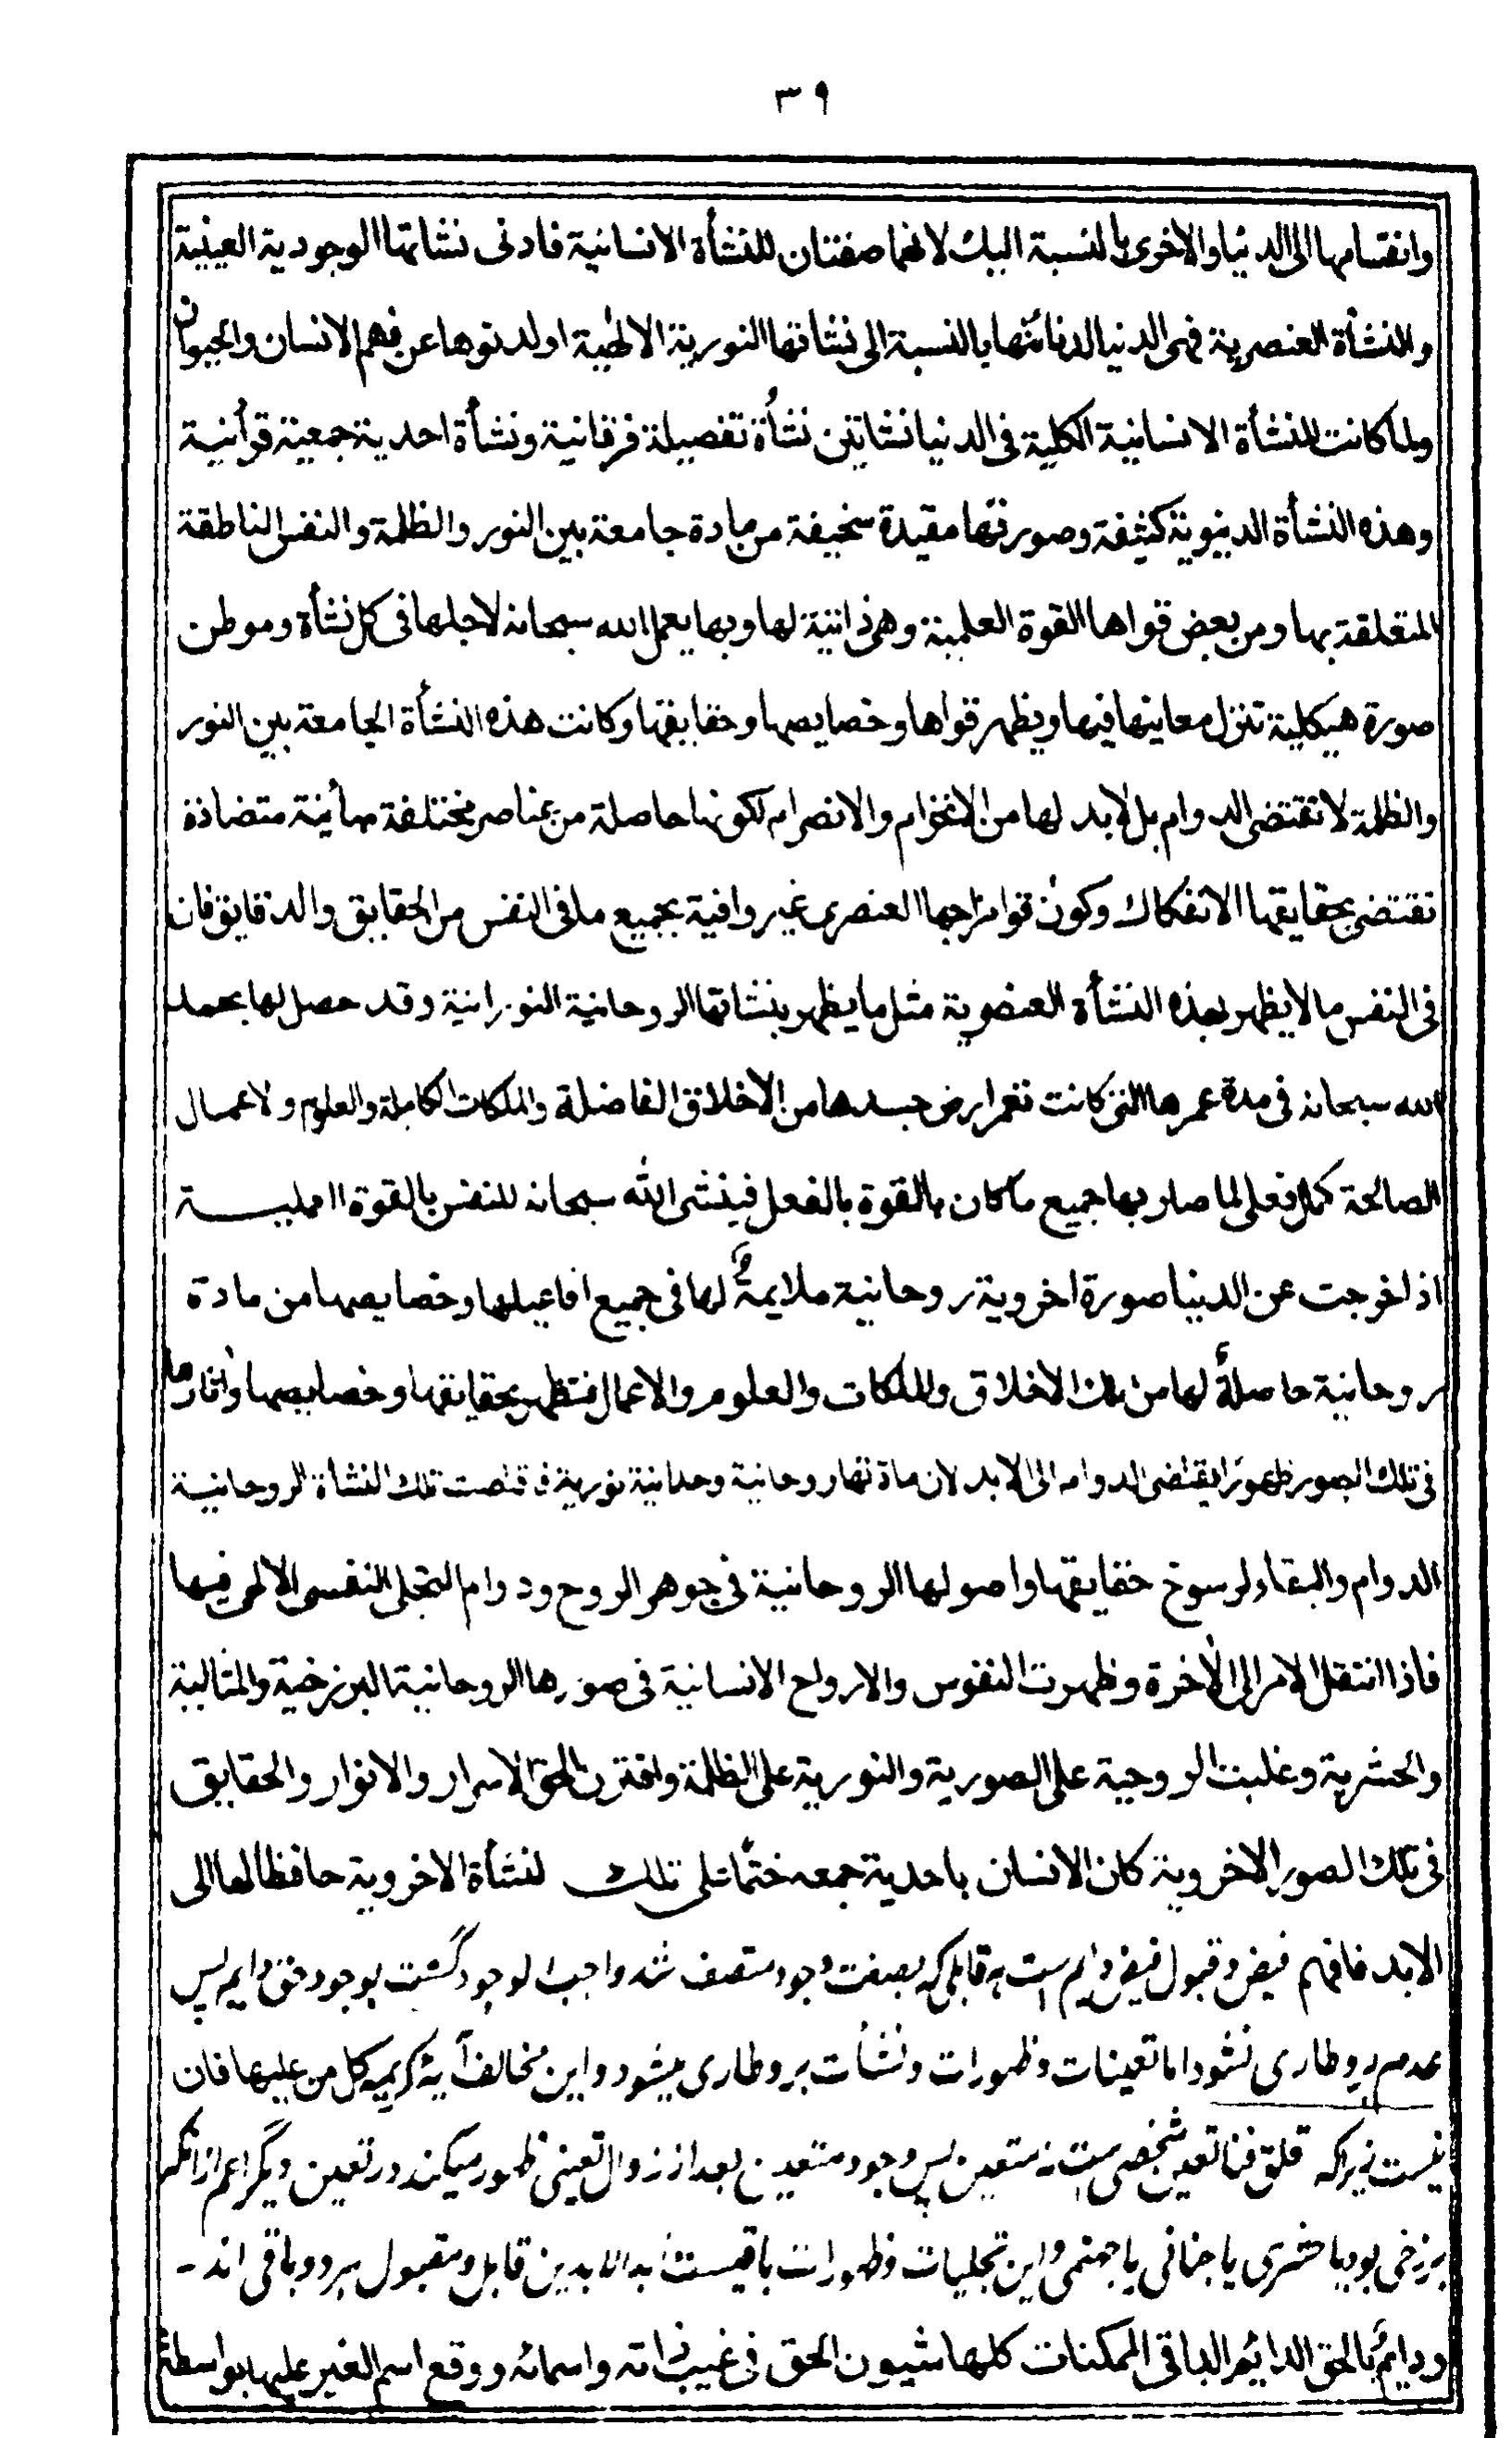 ٣٩
وانقسامها الى الدنيا والاخرى بالنسبة اليك لانهما صفتان للنشأة الانسانية فادنى نشاتها الوجودية العينية
والنشأة العنصرية فهى الدنيا لدنائتها بالنسبة الى نشاتها النورية الالهية اولدنوها عن فهم الانسان والحيوان
ولما كانت للنشأة الانسانية الكلية فى الدنيا نشاتين نشأة تفصيلة فرقانية ونشأة احدية جمعية قرأنية
وهذه النشأة الدنيوية كثيفة وصورتها مقيدة سخيفة من مادة جامعة بين النور والظلمة والنفس الناطقة
المتعلقة بها ومن بعض قواها القوة العلمية وهى ذاتية لها وبها يعمل الله سبحانه لاجلها فى كل نشأة وموطن
صورة هيكلية تنزل معاينها فيها ويظهر قواها وخصايصها وحقايقها وكانت هذه النشأة الجامعة بين النور
والظلمة لا تقتضى الدوام بل لابد لها من الانخرام والانصرام لكونها حاصلة من عناصر مختلفة مبائنة متضادة
تقتضى بحقايقها الانفكاك وكون قوا مزاجها العنصرى غير وافية بجميع ما فى النفس من الحقايق والدقايق فان
فى النفس ما لا يظهر بهذه النشأة العنصرية مثل ما يظهر بنشاتها الروحانية النورانية وقد حصل لها بحمد
الله سبحانه فى مدة عمرها التى كانت تعمر ارض جسدها من الاخلاق الفاضلة والملكات الكاملة والعلوم و لاعمال
الصالحة كمال فعلى لما صار بها جميع ما كان بالقوة بالفعل فينشى الله سبحانه للنفس بالقوة العملية
اذا خرجت عن الدنيا صورة اخروية روحانية ملايمة لها فى جميع افاعيلها وخصايصها من مادة
روحانية حاصلة لها من تلك الاخلاق والملكات والعلوم والاعمال فتظهر بحقايقها وخصايصها واثارها
فى تلك الصور ظهورا يقتضى الدوام الى الابد لان مادتها روحانية وحدانية نورية فاقتضت تلك النشأة الروحانية
الدوام والبقاء لرسوخ حقايقها واصولها الروحانية فى جوهر الروح ودوام التجلى النفسى الالهى فيها
فاذا انتقل الامر الى الاخرة وظهرت النفوس والارواح الانسانية فى صورها الروحانية البرزخية والمثالية
والحشرية وغلبت الروحية على الصورية والنورية على الظلمة واقترن الحق الاسرار والانوار والحقايق
فى تلك الصور الاخروية كان الانسان باحدية جمعه ختما على تلك لنشأة الاخروية حافظا لها الى
الابد فافهم فيض و قبول فيض دايم است هر قابلى كه بصفت وجود متصف شد واجب الوجود گشت بوجود حق دايم پس
عدم برو طارى نشود اما تعينات وظهورات ونشأت برو طارى ميشود و اين مخالف آيۀ كريمه كل من عليها فان
نيست زيراكه قلق فنا تعين شخصى ست نه متعين پس وجود متعين بعد از زوال تعينى ظهور ميكند در تعين ديگر اعم از انكه
برزخى بود يا حشرى يا جنانى يا جهنمى و اين تجليات وظهورات باقيست ابد الابدين قابل ومقبول هر دو باقى اند -
ودايم بالحق الدايم الباقى الممكنات كلها شيون الحق فى غيب ذاته واسمائه ووقع اسم الغير عليها بواسطة